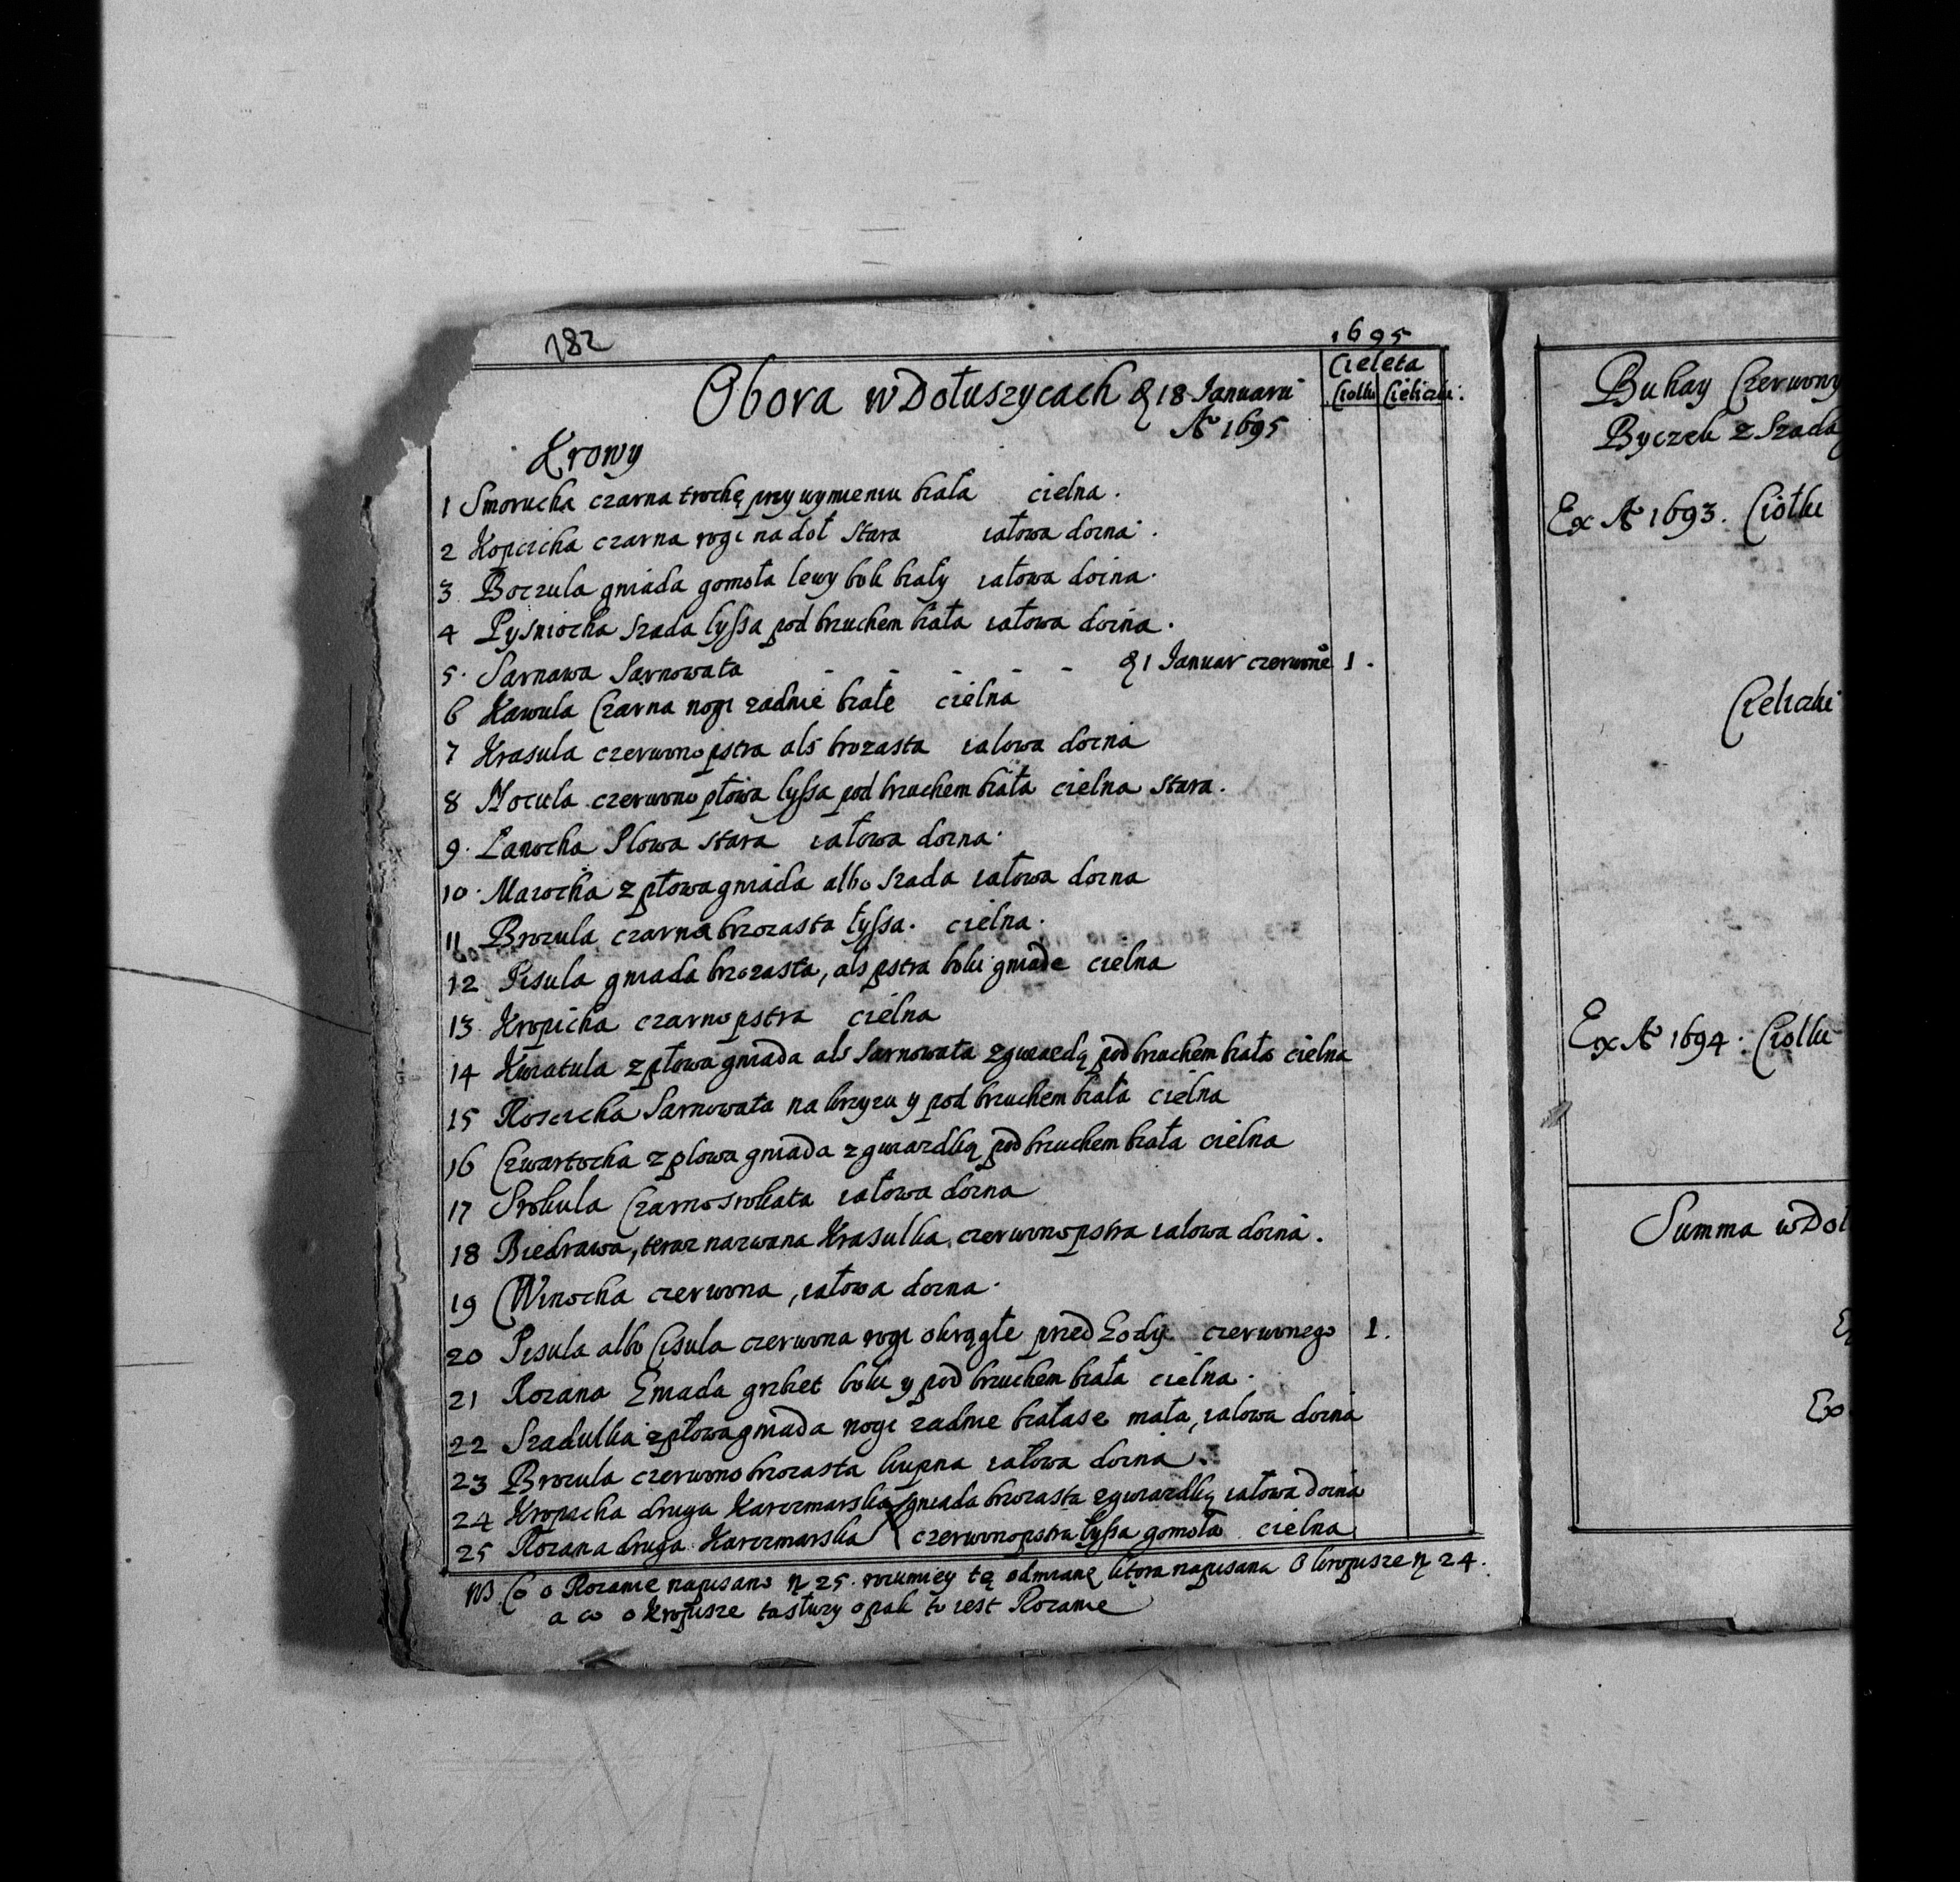 182
1695
Cieleta
Ciolki Cieliczki.
Obora w Dołuszycach 18 Januarii
Ao 1695
Krowy
1 Smorucha czarna trochę przy wymieniu biała cielna.
2 Kopcicha czarna rogi na doł stara iałowa doina.
3 Boczula gniada gomoła lewy bok biały iałowa doina.
4 Pysniocha szada lyssa pod brzuchem biała iałowa doina.
5. Sarnawa Sarnowata - - - - - 1 Januar czerwone 1.
6 Kawula Czarna nogi zadnie białe cielna
7 Krasula czerwonopstra als brozasta ialowa doina
8 Kocula czerwono płowa lyssa pod brzuchem biała cielna stara.
9. Lanocha Plowa stara iałowa doina.
10. Marocha z płowa gniada albo szada iałowa doina
11 Brozula czarna brzozasta łyssa. cielna.
12 Pisula gniada brzozasta, als pstra boki gniade cielna
13. Kropicha czarnopstra cielna
14 Kwiatula z płowa gniada als Sarnowata z gwiazdą pod brzuchem biała cielna
15 Roscicha Sarnowata na krzyzu y pod brzuchem biała cielna
16 Czwartocha z plowa gniada z gwiazdką pod brzuchem biała cielna
17 Srokula Czarnosrokata iałowa doina
18 Biedrawa, teraz nazwana Krasulka czerwonopstra ialowa doina.
19 Winocha czerwona, iałowa doina.
20 Pisula albo Cisula czerwona rogi okrągłe przed Gody czerwonego 1.
21 Rozana Gniada grzbet boki y pod brzuchem biała cielna.
22 Szadulka z płowa gniada nogi zadnie białase mała, ialowa doina
23 Brozula czerwono brzozasta kupna iałowa doina.
24 Kropicha druga Karczmarska gniada brzozasta z gwiazdką iałowa doina
25 Rozana druga Karczmarska czerwonopstra łyssa gomoła cielna
NB Co o Rozanie napisano n 25. rozumiey tę odmianę ktora napisana o kropisze n 24.
a co o kropisze ta służy opak to iest Rozanie
Buhay Czerwony
Byczek z Szada
Ex Ao 1693. Ciołki
Cieliczki
Ex Ao 1694. Ciolki
Summa w Doł
Ex